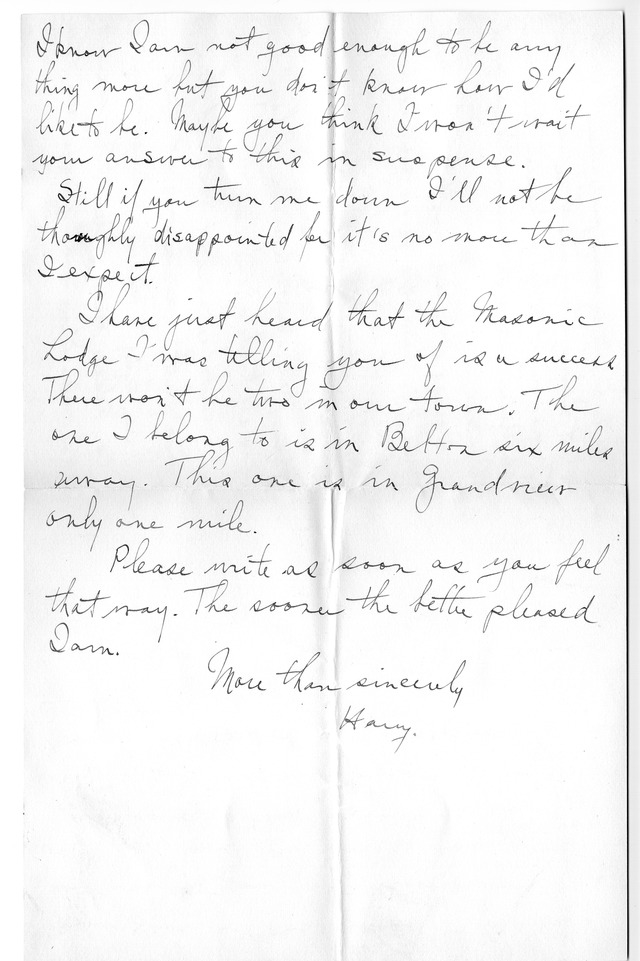 I know I am not good enough to be any
thing more but you don't know how I'd
like to be. Maybe you think I won't wait
your answer to this in suspense.
Still if you turn me down I'll not be
thoroughly disappointed for it's no more than
I expect.
I have just heard that the Masonic
Lodge I was telling you of is a success
There won't be two in our town. The
one I belong to is in Belton six miles
away. This one is in Grandview
only one mile.
Please write as soon as you feel
that way. The sooner the better pleased
I am.
More than sincerely
Harry.